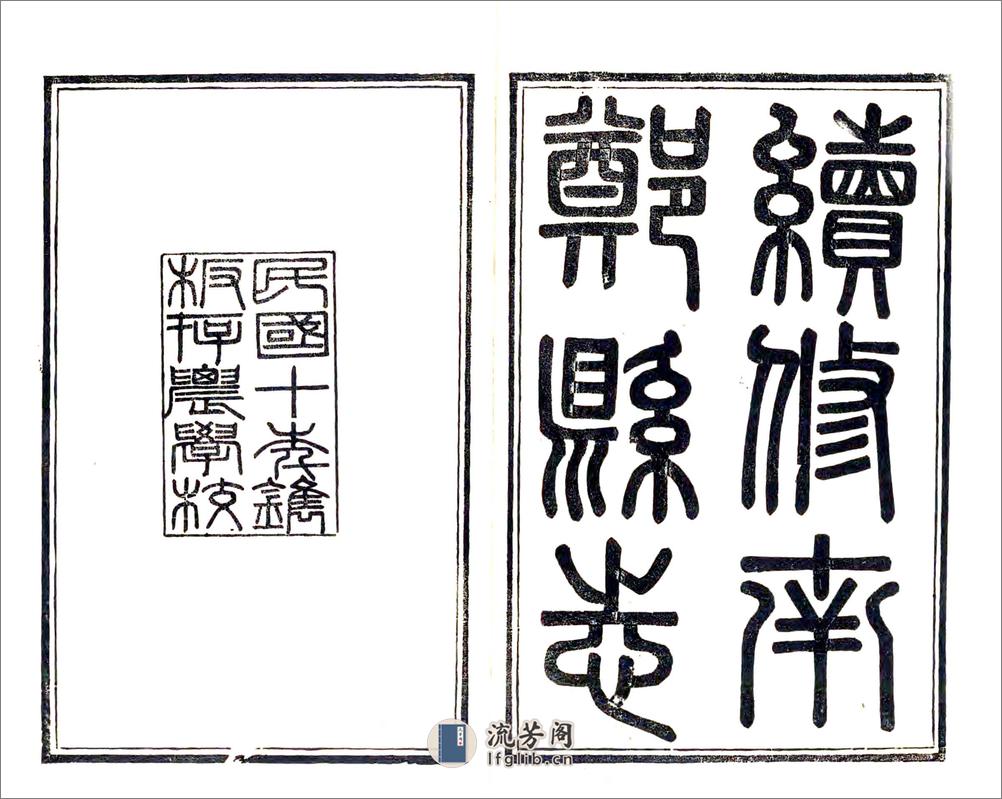 續修南
鄭縣志
民國十年鐫
板存農學校
流芳阁
lfglib.cn